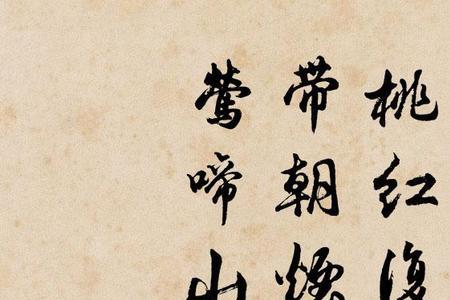 桃红复
带朝烟
莺啼山